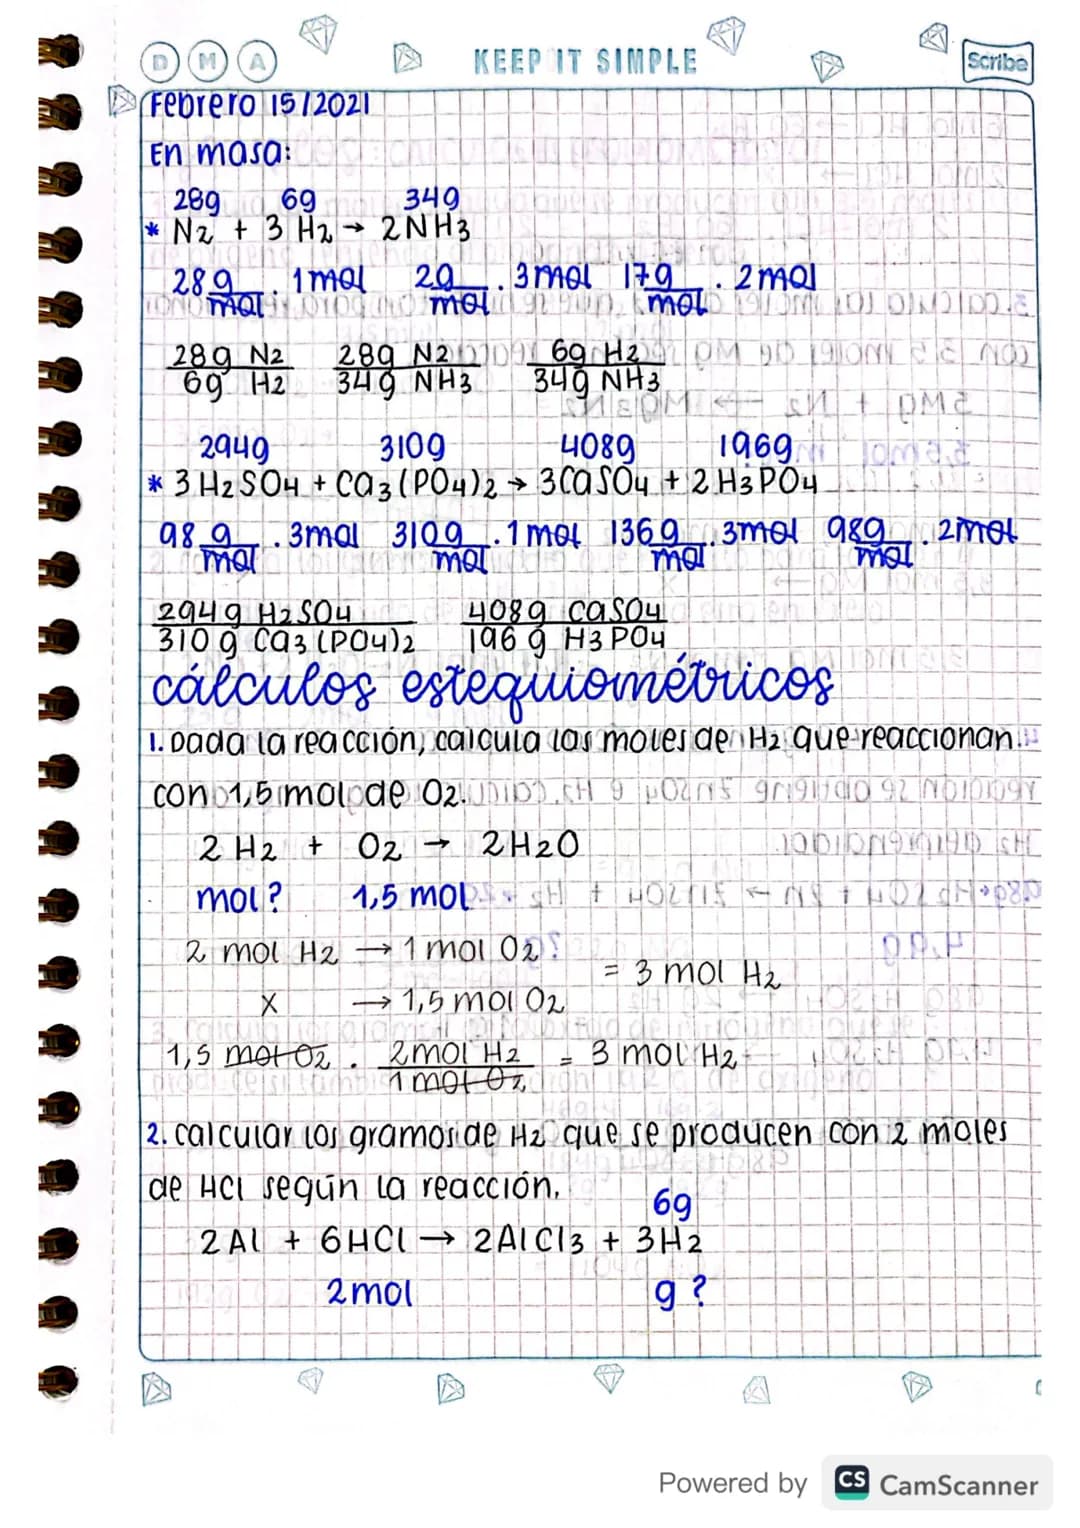 D M A KEEP IT SIMPLE Scribe
Febrero 15/2021
En masa:
28g 6g 34g
* N2 + 3 H2 → 2NH3
28 g/mol . 1mol 2g/mol . 3mol 17g/mol . 2mol
28g N2 28g N2 6g H2
6g H2 34g NH3 34g NH3
294g 310g 408g 196g
* 3 H2SO4 + Ca3(PO4)2 → 3CaSO4 + 2 H3PO4
98 g/mol . 3mol 310g/mol . 1mol 136g/mol . 3mol 98g/mol . 2mol
294g H2SO4 408g CaSO4
310g Ca3(PO4)2 196g H3PO4
cálculos estequiométricos
1. Dada la reacción, calcula las moles de H2 que reaccionan
con 1,5 mol de O2.
2 H2 + O2 → 2H2O
mol? 1,5 mol
2 mol H2 → 1 mol O2
= 3 mol H2
X → 1,5 mol O2
1,5 mol O2 . 2mol H2/1 mol O2 = 3 mol H2
2. calcular los gramos de H2 que se producen con 2 moles
de HCl según la reacción.
6g
2Al + 6HCl → 2AlCl3 + 3H2
2mol g?
Powered by CS CamScanner